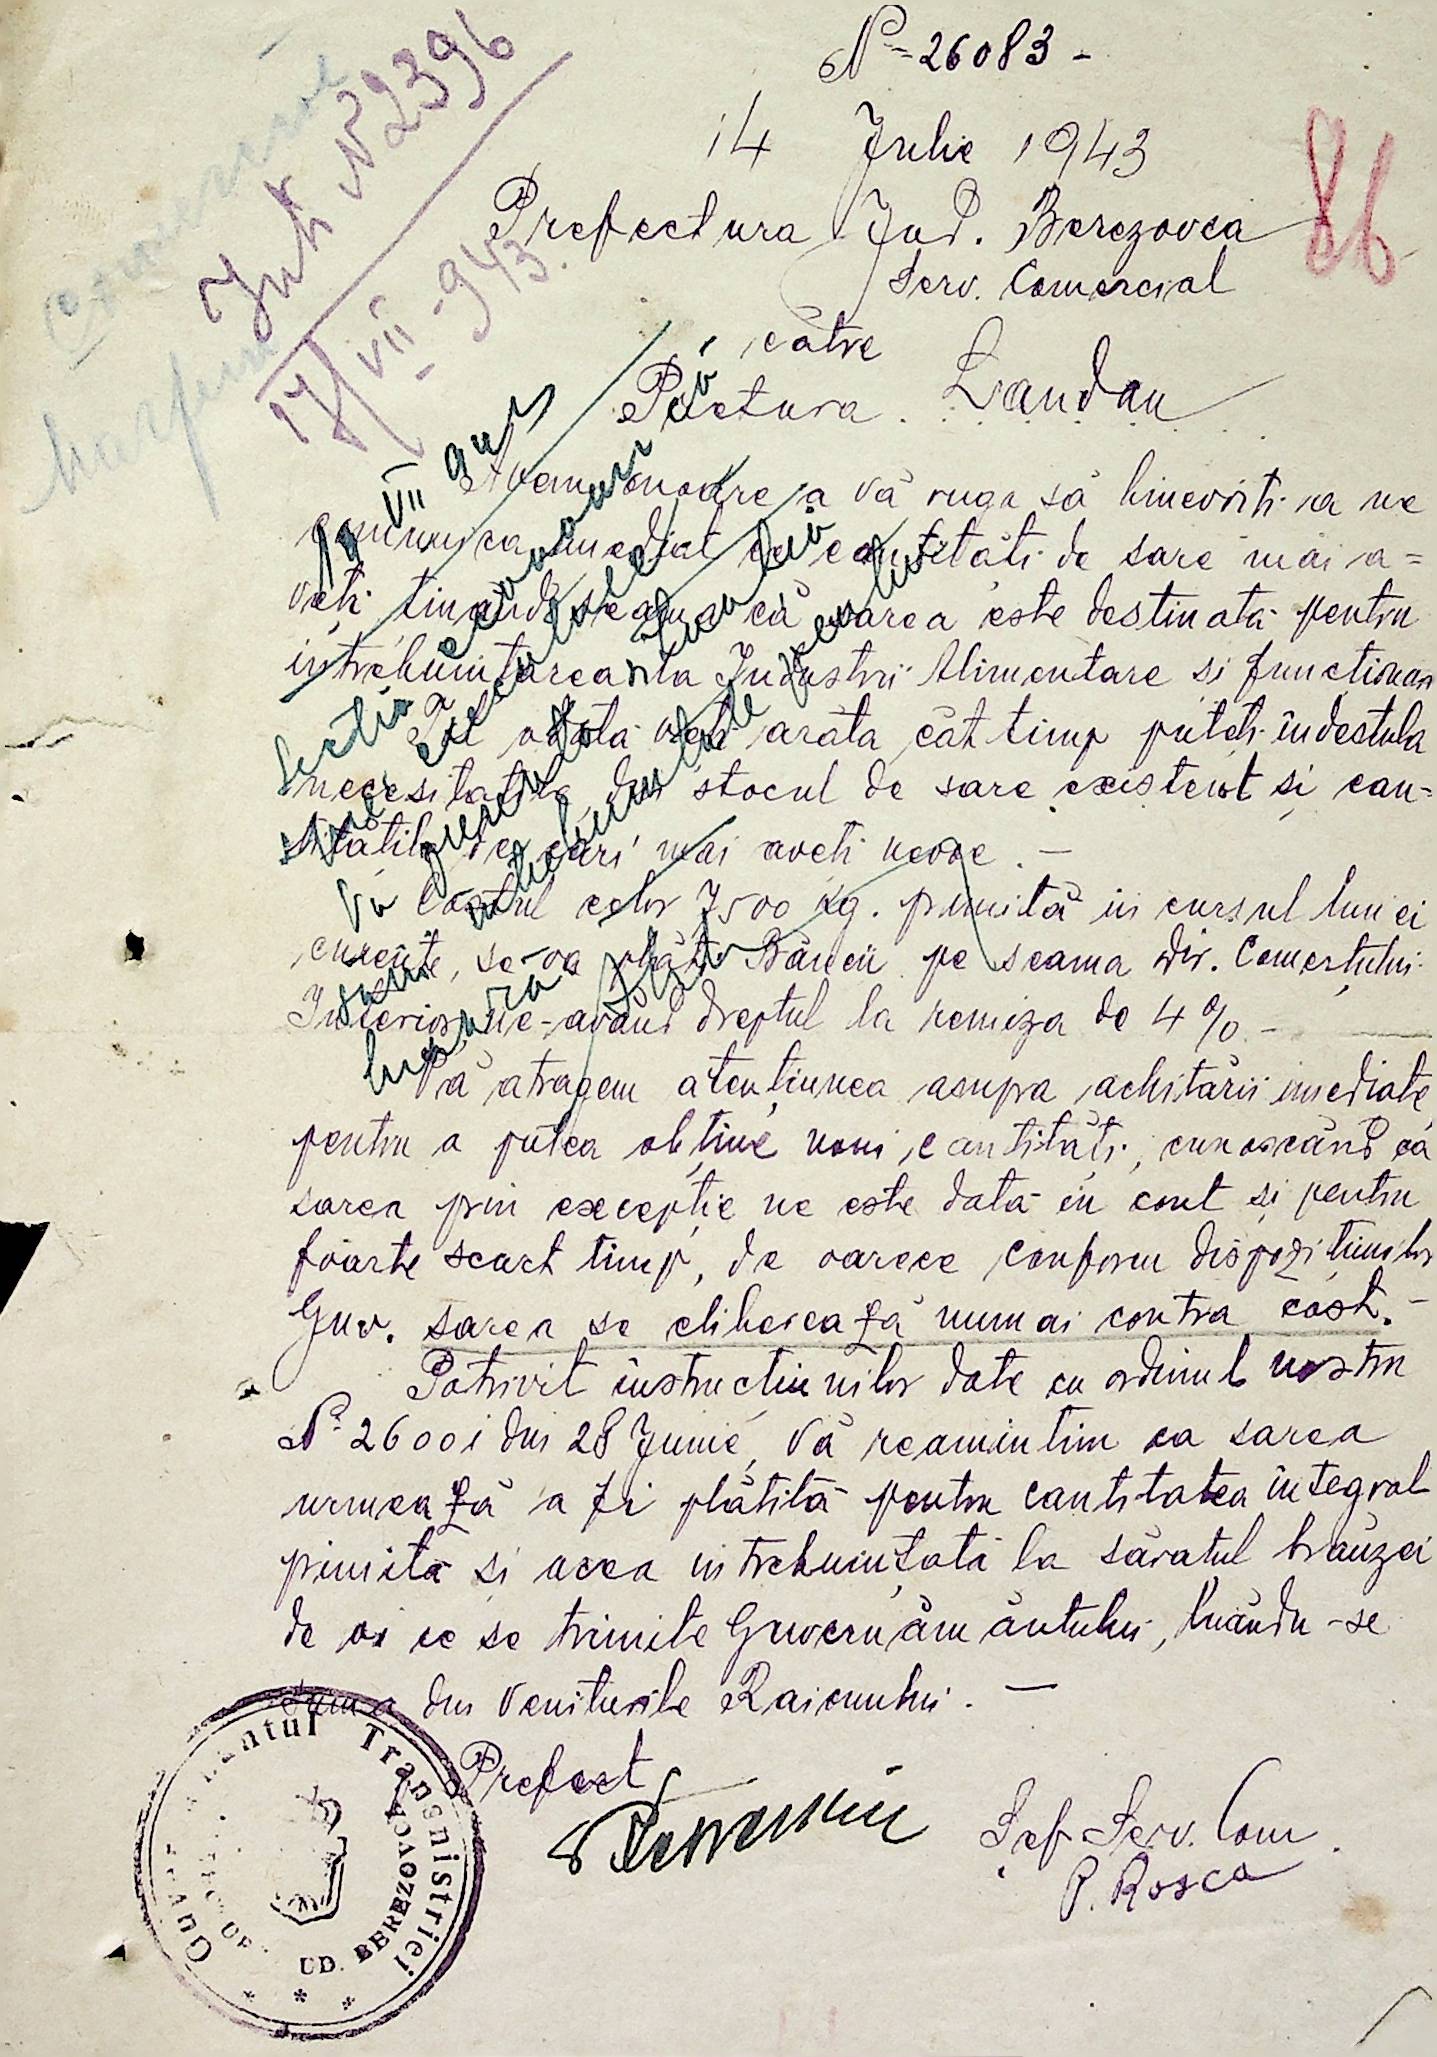 Nº 26083 -
14 Julie 1943
86
Prefectura Jud. Berezovca
Serv. Comercial
către
Pretura Landau
Int. Nº 2396
17/VII-943.
Avem onoare a vă ruga să binevoiti a ne
comunica imediat ce cantităti de sare mai a=
veti tinând seama că sarea este destinată pentru
intrebuintarea la Industrii Alimentare si functionari
Tot odată veti arăta cât timp puteti îndestula
necesitatile din stocul de sare existent si can-
titătile de cari mai aveti nevoe. —
Costul celor 7500 kg. primită in cursul lunei
curente, se va plăti Băncii pe seama Dir. Comertului
Interior ne-având dreptul la remiza de 4% -
Vă atragem atențiunea asupra achitării imediate
pentru a putea obține noui cantităti, cunoscând că
sarea prin excepție ne este dată in cont și pentru
foarte scurt timp, de oarece conform dispozițiunilor
Guv. sarea se eliberează numai contra cost. -
Potrivit instructiunilor date cu ordinul nostru
Nº 26001 din 28 Junie, Vă reamintim ca sarea
urmează a fi plătită pentru cantitatea integral
primită și acea intrebuințată la săratul brânzei
de oi ce se trimite Guvernământului, luându-se
suma din veniturile Raionului. —
Prefect
Șef Serv. Com.
P. Rosca
Transnistriei
UD. BEREZOVCA